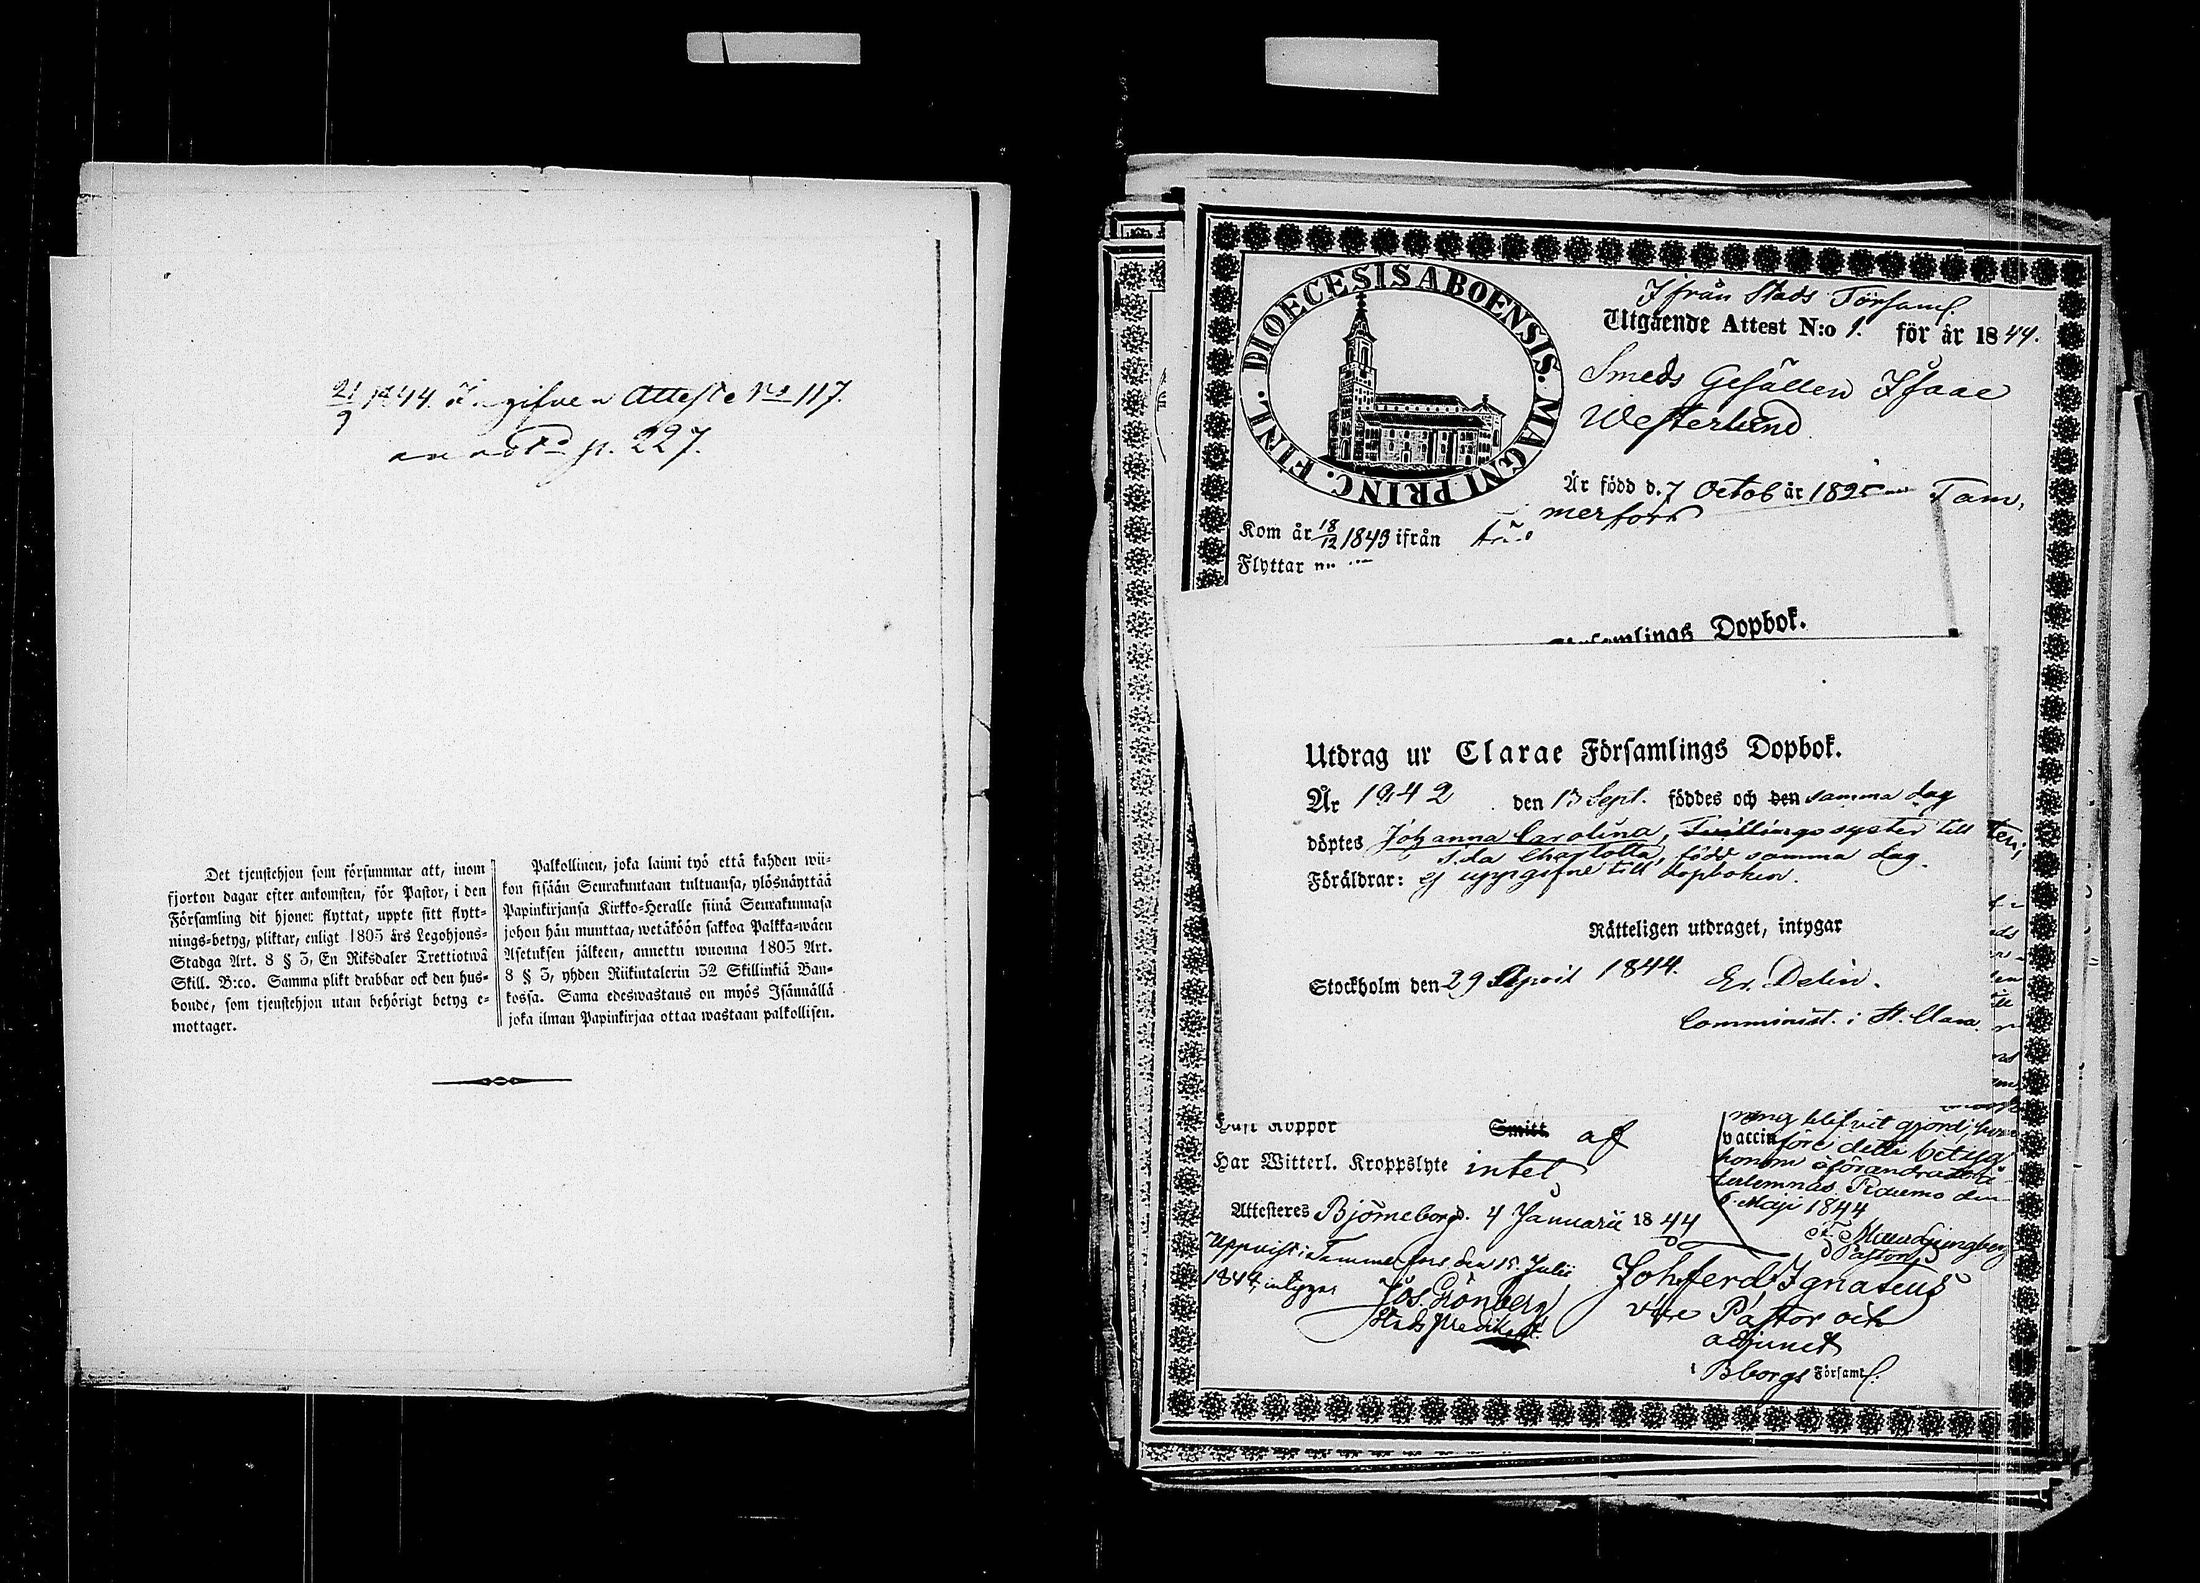 21/9 1844. Ingifven Atteste No 117.
p. 227.
Det tjenstehjon som försummar att, inom
fjorton dagar efter ankomsten, för Pastor, i den
Församling dit hjonet flyttat, uppte sitt flytt-
nings-betyg, pliktar, enligt 1805 års Legohjons-
Stadga Art. 8 § 3, En Riksdaler Trettiotwå
Skill. B:co. Samma plikt drabbar ock den hus-
bonde, som tjenstehjon utan behörigt betyg e-
mottager.
Palkollinen, joka laimi työ että kahden wii-
kon sisään Seurakuntaan tultuansa, ylösnäyttää
Papinkirjansa Kirkko-Heralle siinä Seurakunnasa
johon hän muuttaa, wetäköön sakkoa Palkka-wäen
Asetuksen jälkeen, annettu wuonna 1805 Art.
8 § 3, yhden Riikintalerin 32 Skillinkiä Ban-
kossa. Sama edeswastaus on myös Isännällä
joka ilman Papinkirjaa ottaa wastaan palkollisen.
DIOECESIS ABOENSIS. MAGNI PRINC. FINL.
Ifrån Stads Församl.
Utgående Attest N:o 1. för år 1844.
Smeds Gesällen Isaac
Westerlund
Är född d. 7 Octob år 1825 Tam,
merfors
Kom år 18/12 1843 ifrån
Flyttar
Församlings Dopbok.
Utdrag ur Clarae Församlings Dopbok.
År 1842 den 13 Sept. föddes och den samma dag
döptes Johanna Carolina, Tvillingssyster till
Ida Charlotta, född samma dag.
Föräldrar: ej uppgifne till dopboken.
Rätteligen utdraget, intygar
Stockholm den 29 April 1844. Er. Delin.
Comminist. i St. Clara.
Haft Koppor Smitt af
vaccin
Har Witterl. Kroppslyte intet
ning blifvit gjord,
före detta betyg
honom oförandradt
terlemnas den
6. Maji 1844
Pastor
Attesteres Björneborg d. 4 Januarii 1844
Uppvist i Tammerfors den 15. Julii
1844, intygar
Jos. Grönberg
Stads Predikant.
Joh. Ferd. Ignatius
vice Pastor och
adjunct
i Bborgs Församl.